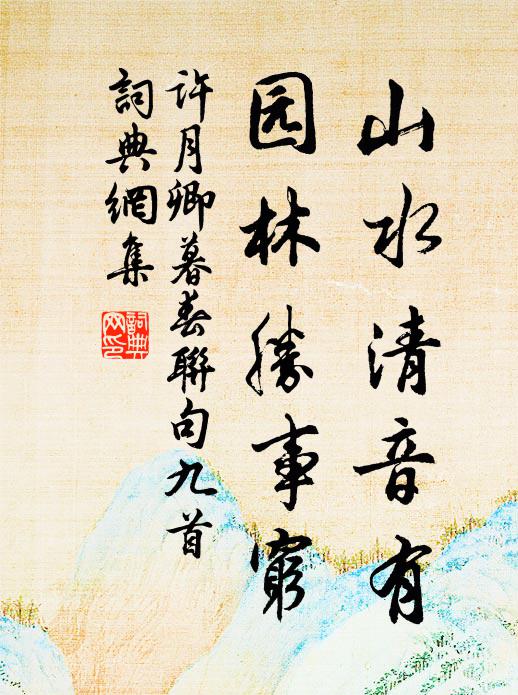 山水清音有
园林勝事窮
许月卿暮春聯句九首
詞典網集
詞典
网印